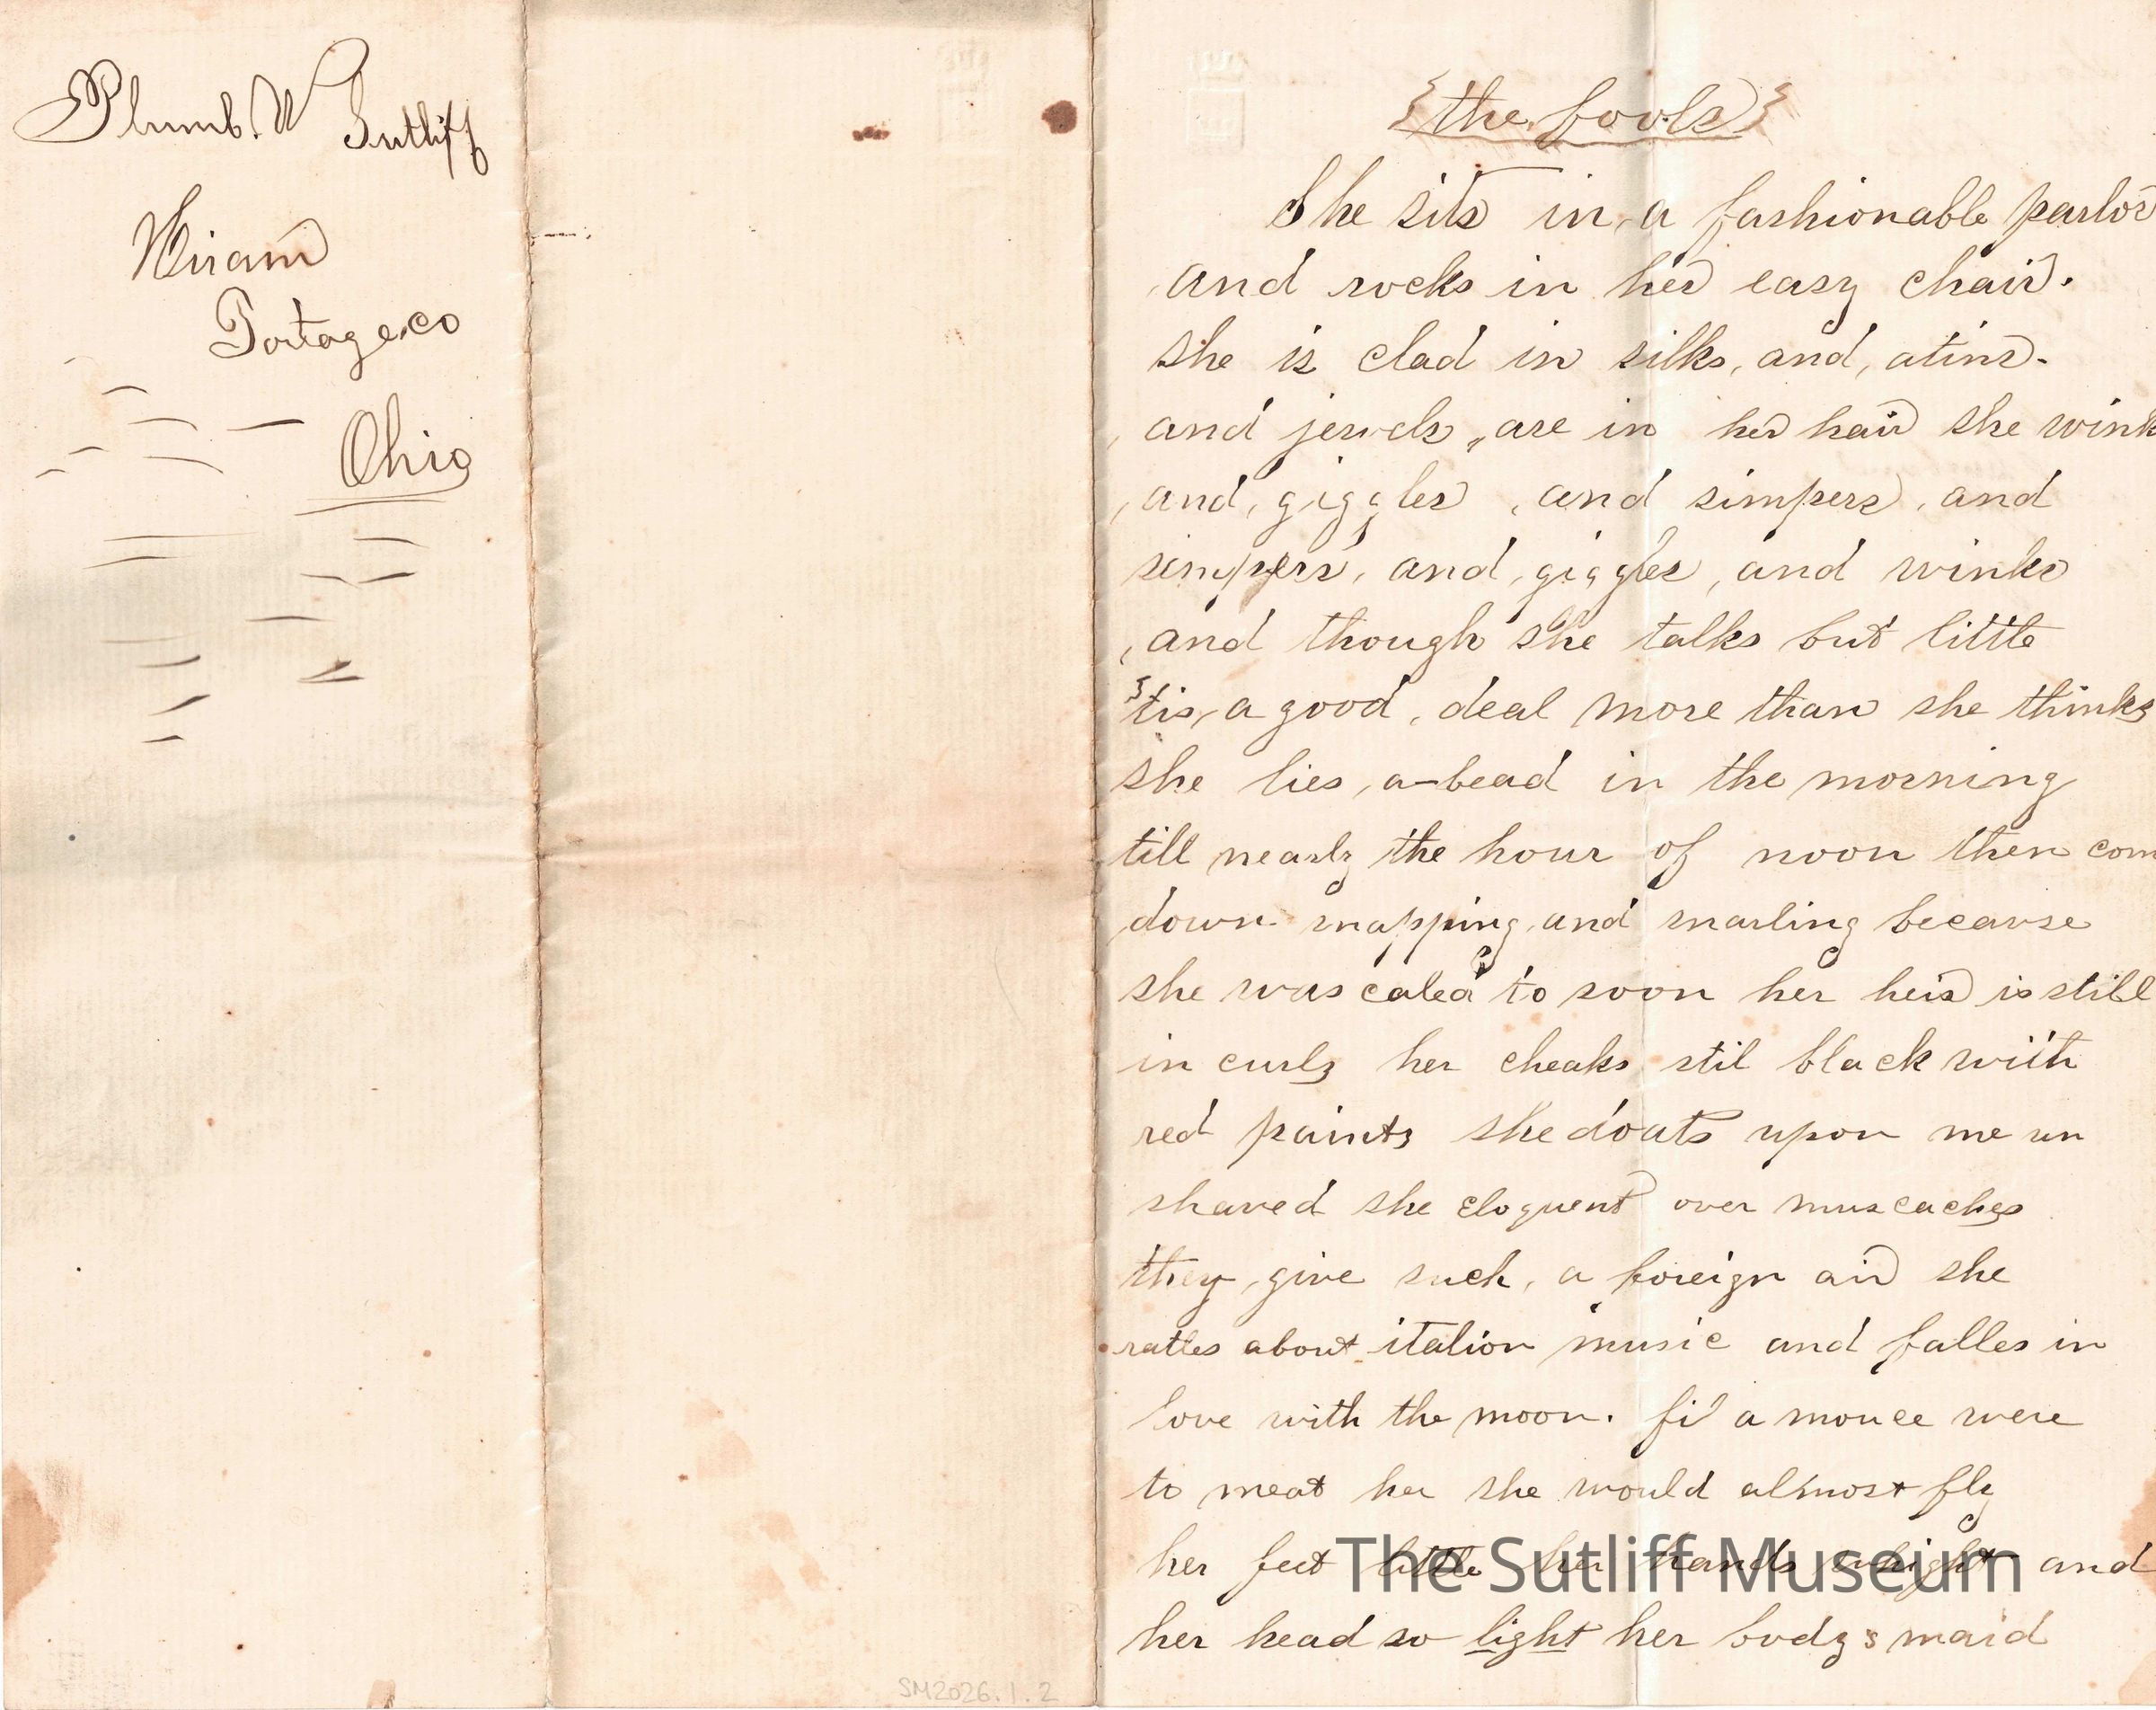 Plumb. W Sutliff
Hiram
Portage.co
Ohio
SM2026.1.2
{the fools}
She sits in a fashionable parlor
and rocks in her easy chair.
she is clad in silks, and, atins.
and jewels are in her hair she wink
and, giggles, and simpers, and
simpers, and, giggles, and winks
, and though she talks but little
'tis, a good, deal more than she thinks
she lies, a-bead in the morning
till nearly the hour of noon then com
down snapping, and snarling because
she was caled to soon her heir is still
in curls her cheaks stil black with
red paints she doats upon me un
shaved she eloquent over muscaches
they, give such, a foreign air she
rattes about italion music and falles in
love with the moon. fi a mouce were
to meat her she would almost fly
her feet little her hands whight and
her head so light her body s maid
The Sutliff Museum